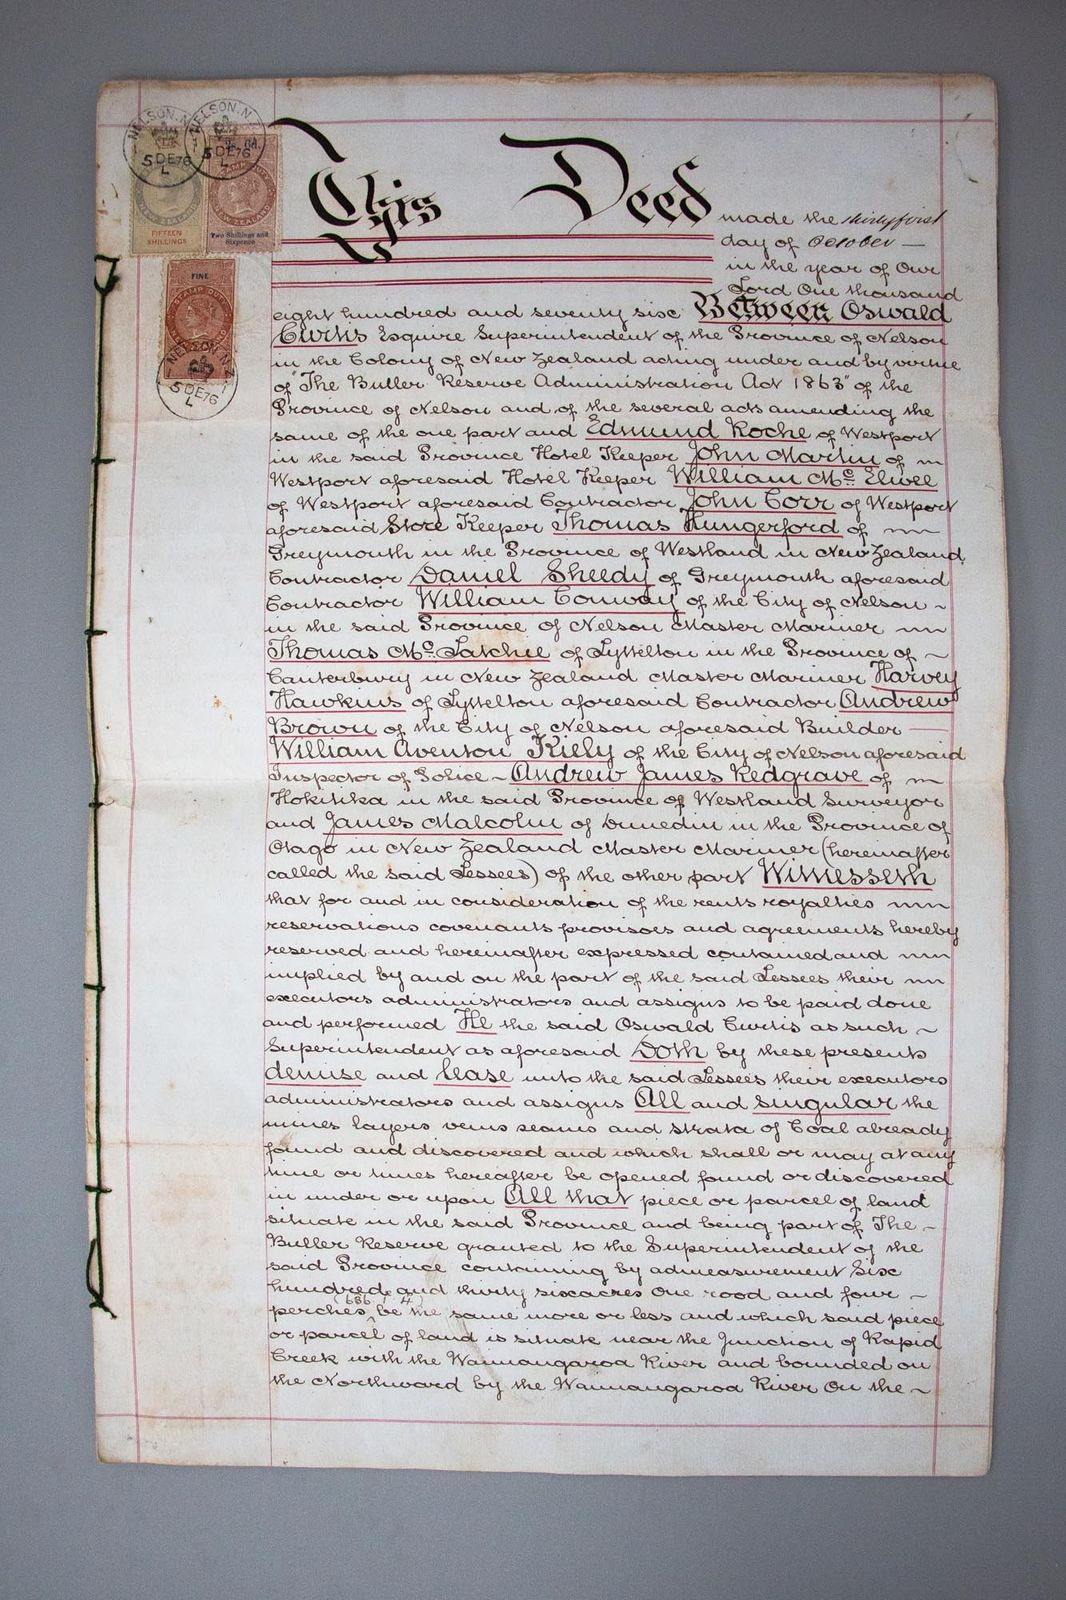 NELSON. N.Z
5 DE 76
L
NELSON. N.Z
5 DE 76
L
NEW ZEALAND
FIFTEEN
SHILLINGS
STAMP DUTY
NEW ZEALAND
Two Shillings and
Sixpence
FINE
STAMP DUTY
NELSON N.Z
5 DE 76
L
This Deed made the thirty first
day of October —
in the year of Our
Lord One thousand
eight hundred and seventy six Between Oswald
Curtis Esquire Superintendent of the Province of Nelson
in the Colony of New Zealand acting under and by virtue
of "The Buller Reserve Administration Act 1863" of the
Province of Nelson and of the several acts amending the
same of the one part and Edmund Roche of Westport
in the said Province Hotel Keeper John Martin of
Westport aforesaid Hotel Keeper William Mc Elwee
of Westport aforesaid Contractor John Corr of Westport
aforesaid Store Keeper Thomas Hungerford of
Greymouth in the Province of Westland in New Zealand
Contractor Daniel Sheedy of Greymouth aforesaid
Contractor William Conway of the City of Nelson
in the said Province of Nelson Master Mariner
Thomas Mc Latchie of Lyttelton in the Province of
Canterbury in New Zealand Master Mariner Harvey
Hawkins of Lyttelton aforesaid Contractor Andrew
Brown of the City of Nelson aforesaid Builder —
William Aventon Kiely of the City of Nelson aforesaid
Inspector of Police Andrew James Redgrave of
Hokitika in the said Province of Westland Surveyor
and James Malcolm of Dunedin in the Province of
Otago in New Zealand Master Mariner (hereinafter
called the said Lessees) of the other part Witnesseth
that for and in consideration of the rents royalties
reservations covenants provisoes and agreements hereby
reserved and hereinafter expressed contained and
implied by and on the part of the said Lessees their
executors administrators and assigns to be paid done
and performed He the said Oswald Curtis as such
Superintendent as aforesaid Doth by these presents
demise and lease unto the said Lessees their executors
administrators and assigns All and singular the
mines layers veins seams and strata of Coal already
found and discovered and which shall or may at any
time or times hereafter be opened found or discovered
in under or upon All that piece or parcel of land
situate in the said Province and being part of The
Buller Reserve granted to the Superintendent of the
said Province containing by admeasurement Six
hundred and thirty six acres One rood and four
(636 . 1 . 4)
perches be the same more or less and which said piece
or parcel of land is situate near the Junction of Rapid
Creek with the Waimangaroa River and bounded on
the Northward by the Waimangaroa River On the